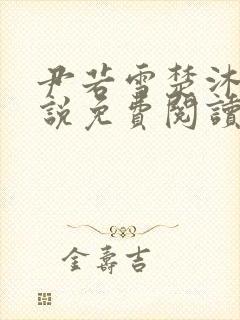 尹若雪楚沐
說免費閱讀
金壽吉